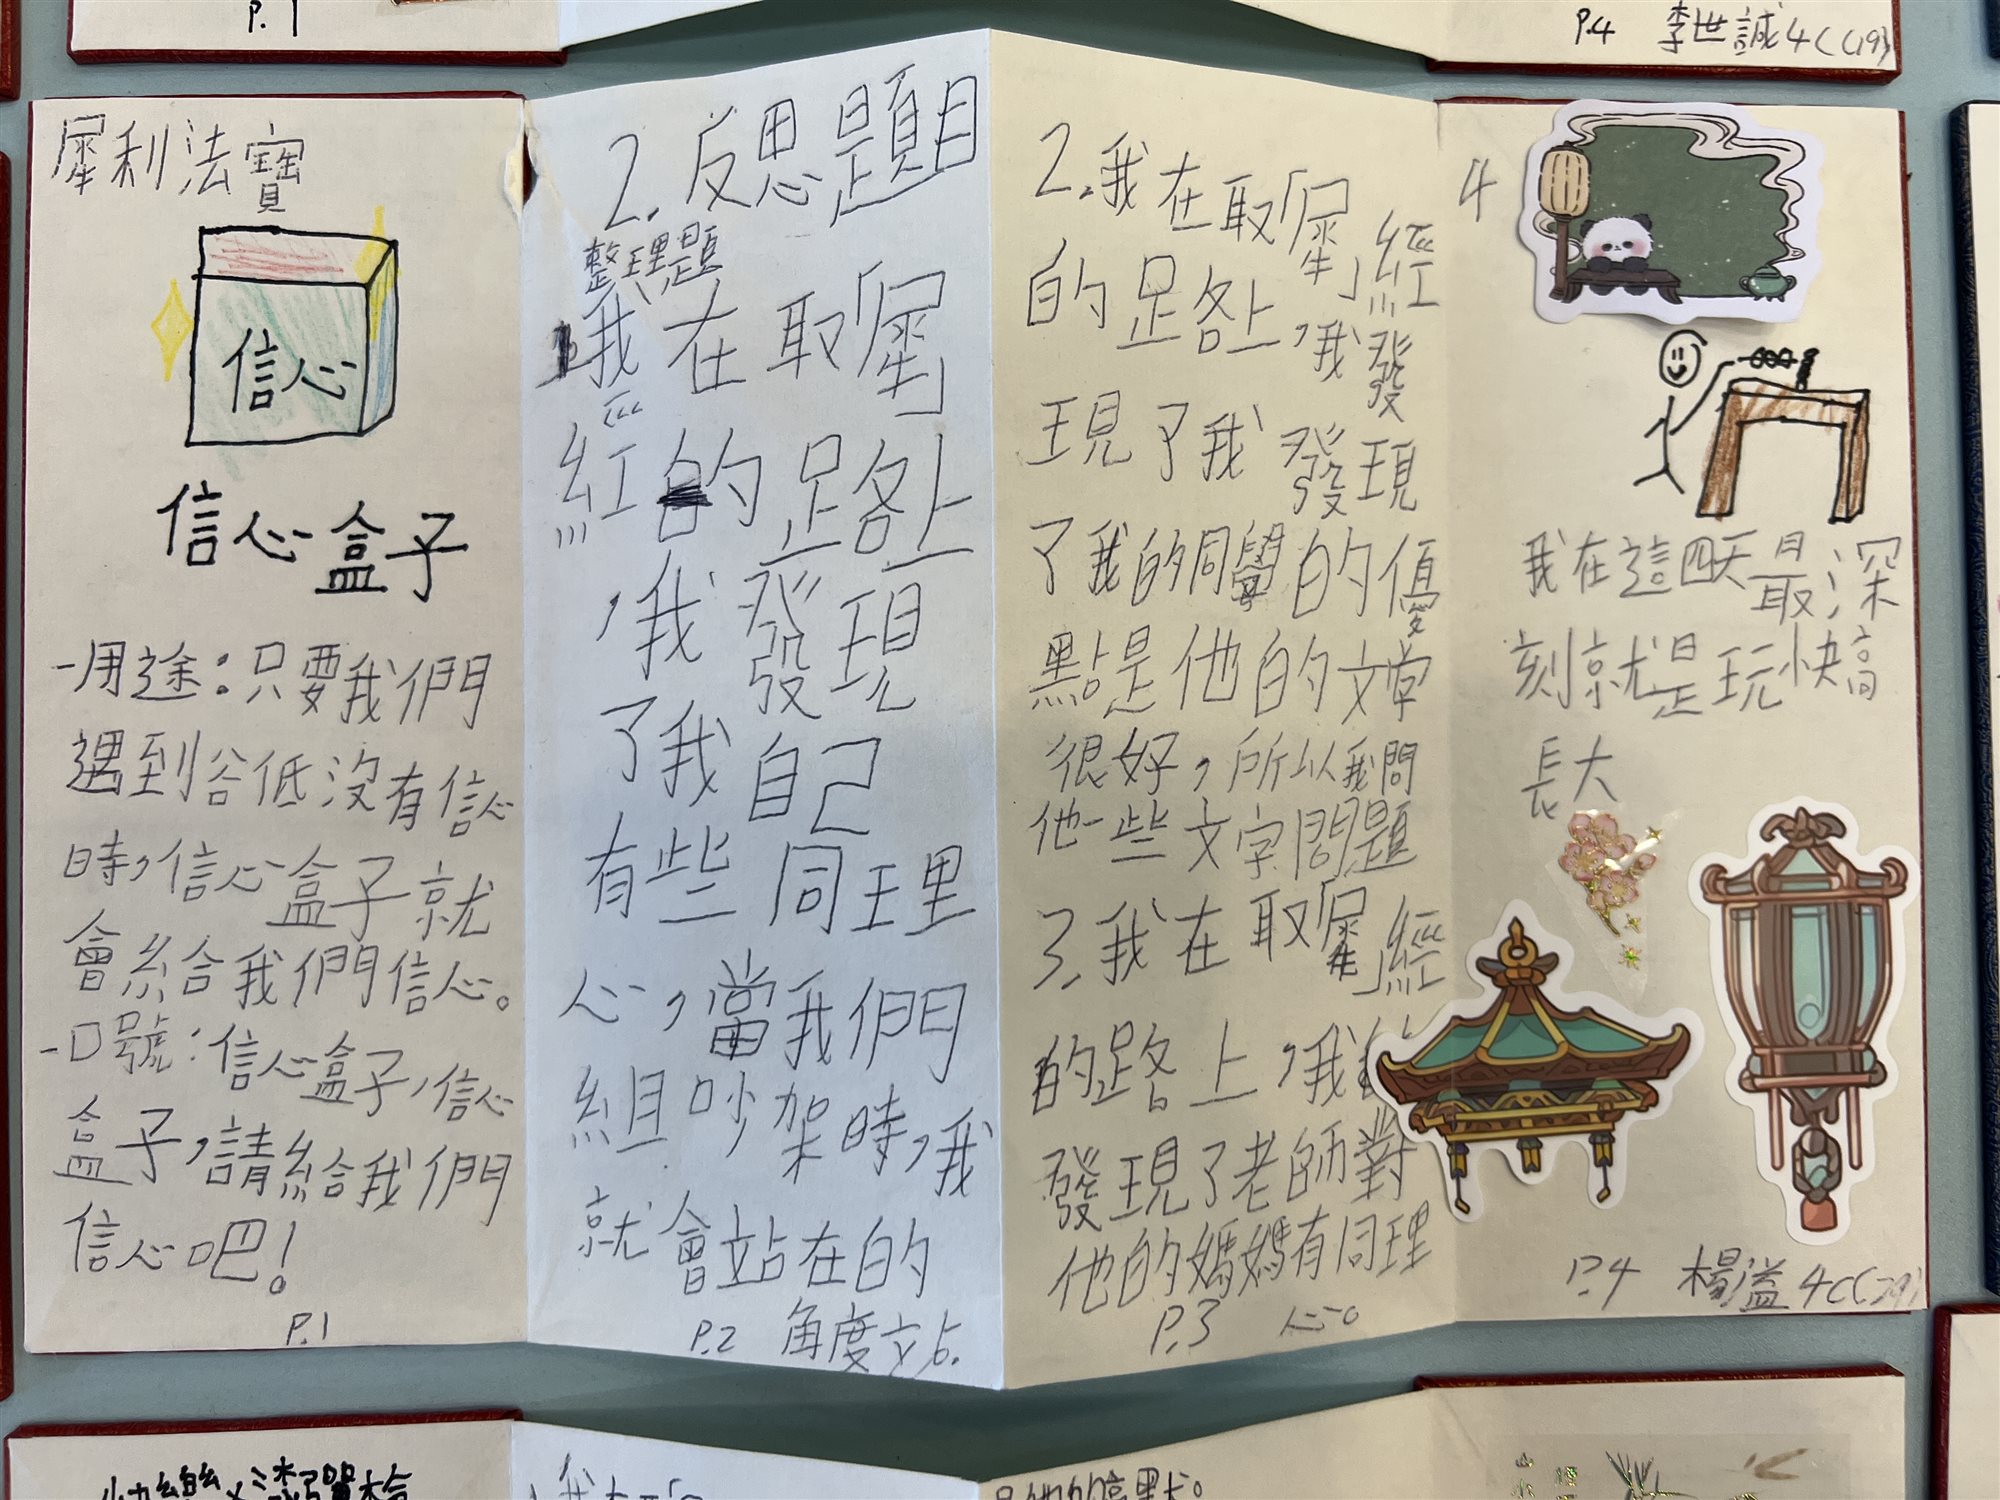 P.1
P.4 李世誠 4C(19)
犀利法寶
信心
信心盒子
-用途：只要我們
遇到谷低沒有信心
時，信心盒子就
會給我們信心。
-口號：信心盒子，信心
盒子，請給我們
信心吧！
P.1
2.反思題
整理題
1.我在取「犀」
經的路上
，我發現
了我自己
有些同理
心，當我們
組吵架時，我
就會站在的
角度站.
P.2
2.我在取「犀」經
的路上，我發
現了我發現
了我的同學的優
點是他的文字
很好，所以我問
他一些文字問題
3.我在取「犀」經
的路上，我
發現了老師對
他的媽媽有同理
心。
P.3
4
我在這四天最深
刻就是玩快高
長大
P.4 楊溢 4C(29)